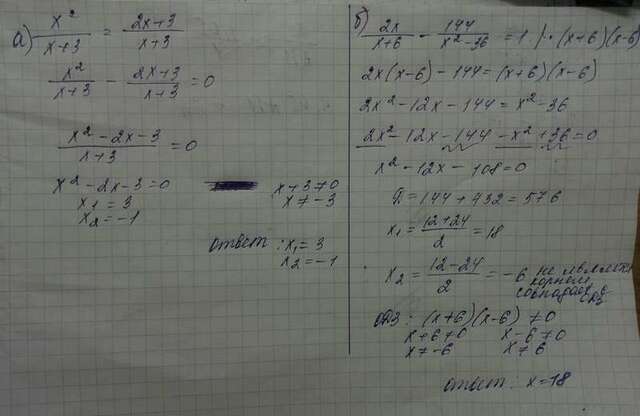 а) x²/(x+3) = (2x+3)/(x+3)
x²/(x+3) - (2x+3)/(x+3) = 0
(x²-2x-3)/(x+3) = 0
x²-2x-3=0
x+3≠0
x₁=3
x≠-3
x₂=-1
ответ: x₁=3
x₂=-1
б) 2x/(x+6) - 144/(x²-36) = 1 |·(x+6)(x-6)
2x(x-6)-144=(x+6)(x-6)
2x²-12x-144=x²-36
2x²-12x-144-x²+36=0
x²-12x-108=0
D=144+432=576
x₁=(12+24)/2=18
x₂=(12-24)/2=-6 не является
корнем
совпадает с
ОДЗ
ОДЗ: (x+6)(x-6)≠0
x+6≠0 x-6≠0
x≠-6 x≠6
ответ: x=18